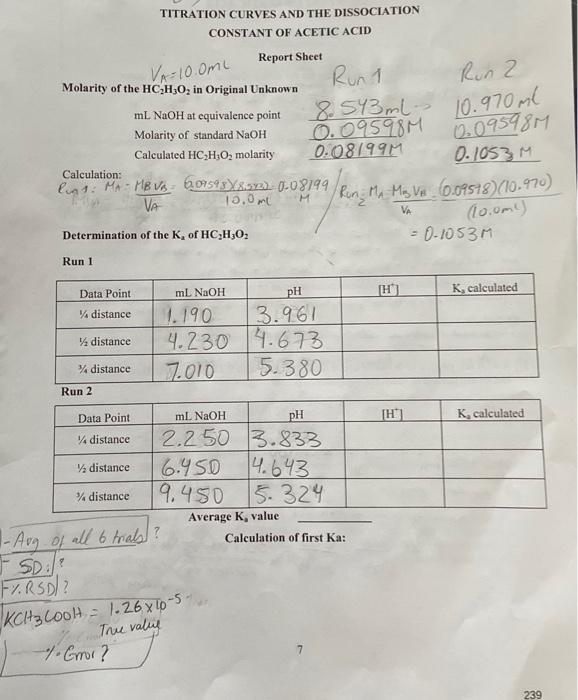 TITRATION CURVES AND THE DISSOCIATION
CONSTANT OF ACETIC ACID
Report Sheet
VA=10.0mL
Run 1 Run 2
Molarity of the HC₂H₃O₂ in Original Unknown
mL NaOH at equivalence point 8.543mL 10.970 mL
Molarity of standard NaOH 0.09598M 0.09598M
Calculated HC₂H₃O₂ molarity 0.08199M 0.1053 M
Calculation:
Run 1: MA = MBVB = (0.09598)(8.543) = 0.08199 M
VA 10.0mL
Run 2 MA = MBVB (0.09598)(10.970)
VA (10.0mL)
= 0.1053M
Determination of the Kₐ of HC₂H₃O₂
Run 1
Data Point mL NaOH pH [H⁺] Kₐ calculated
¼ distance 1.190 3.961
½ distance 4.230 4.673
¾ distance 7.010 5.380
Run 2
Data Point mL NaOH pH [H⁺] Kₐ calculated
¼ distance 2.250 3.833
½ distance 6.450 4.643
¾ distance 9.450 5.324
Average Kₐ value
- Avg of all 6 trials ?
Calculation of first Ka:
- SD: ?
- %RSD ?
KCH3COOH = 1.26 x 10⁻⁵
True value
- % Error ?
7
239